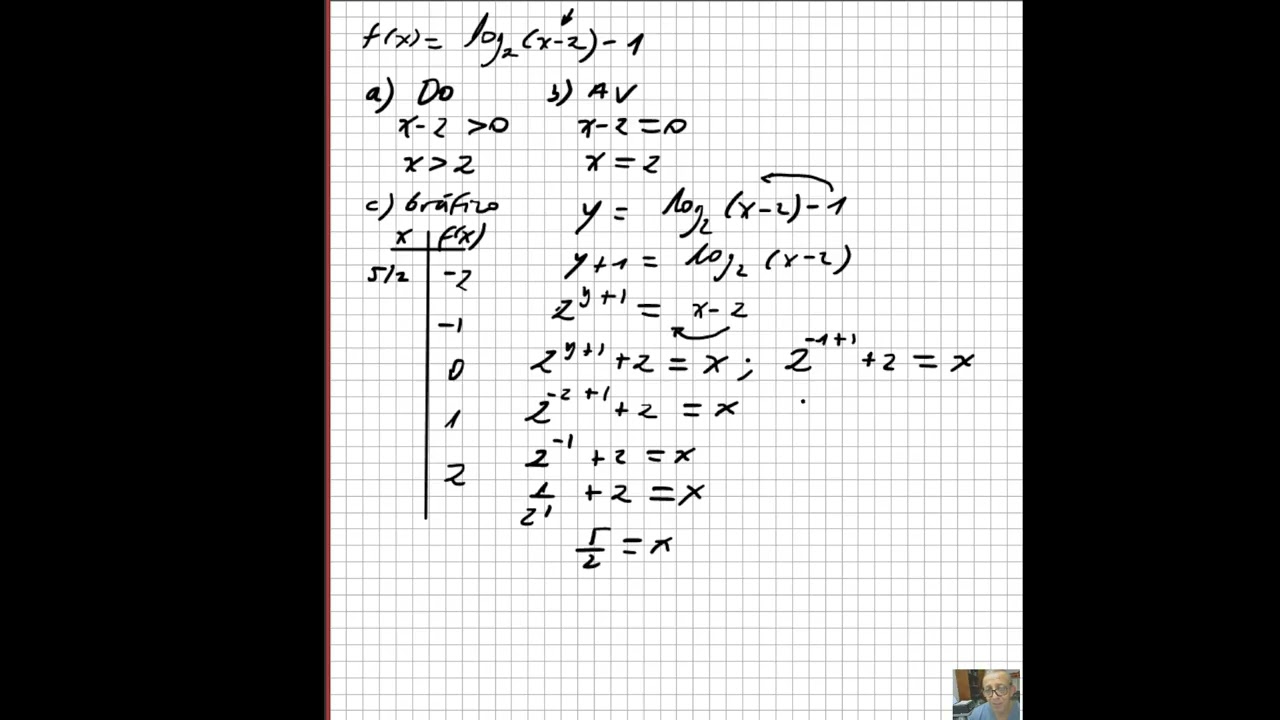 f(x) = log₂(x-2) - 1
a) Do
x-2 > 0
x > 2
b) AV
x-2 = 0
x = 2
c) Gráfico
x | f(x)
5/2 | -2
-1
0
1
2
y = log₂(x-2) - 1
y+1 = log₂(x-2)
2^{y+1} = x-2
2^{y+1} + 2 = x ; 2^{-1+1} + 2 = x
2^{-2+1} + 2 = x
2^{-1} + 2 = x
1/2^1 + 2 = x
5/2 = x